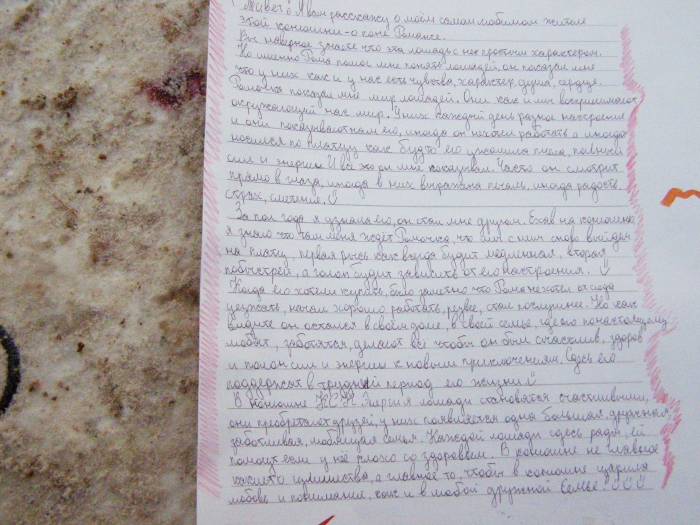 Привет! Я вам расскажу о моём самом любимом жителе
этой конюшни - о коне Романсе.
Вы наверное знаете что эта лошадь с непростым характером.
Но именно Рома помог мне понять лошадей, он показал мне
что у них как и у нас есть чувства, характер, душа, сердце.
Ромочка показал мне мир лошадей. Они как и мы воспринимают
окружающий нас мир. У них каждый день разное настроение
и они показывают нам его, иногда он не хотел работать а иногда
носился по плацу как будто его укусила пчела, полный
сил и энергии. И всё это он мне показывал. Часто он смотрит
прямо в глаза, иногда в них выражена печаль, иногда радость,
страх, смятение.
За пол года я узнала его, он стал мне другом. Ехав на конюшню
я знаю что там меня ждёт Ромочка, что мы с ним скоро выйдем
на плац, первая рысь как всегда будит медленная, вторая
побыстрей, а голоп будит зависить от его настроения.
Когда его хотели купить, было заметно что Рома не хотел от сюда
уезжать, начал хорошо работать, резвее, стал послушнее. Но как
видите он остался в своём доме, в своей семье, где его понастоящему
любят, заботятся, делают всё чтобы он был счастлив, здоров
и полон сил и энергии к новым приключениям. Здесь его
поддержат в трудный период его жизни.
В конюшне КСК лошади становятся счастливыми,
они приобретают друзей, у них появляется одна большая, дружная,
заботливая, любящая семья. Каждой лошади здесь рады, ей
помогут если у неё плохо со здоровьем. В конюшне не главное
какието имущества, а главное то, чтобы в конюшне царила
любовь и понимание, как и в любой дружной семье!